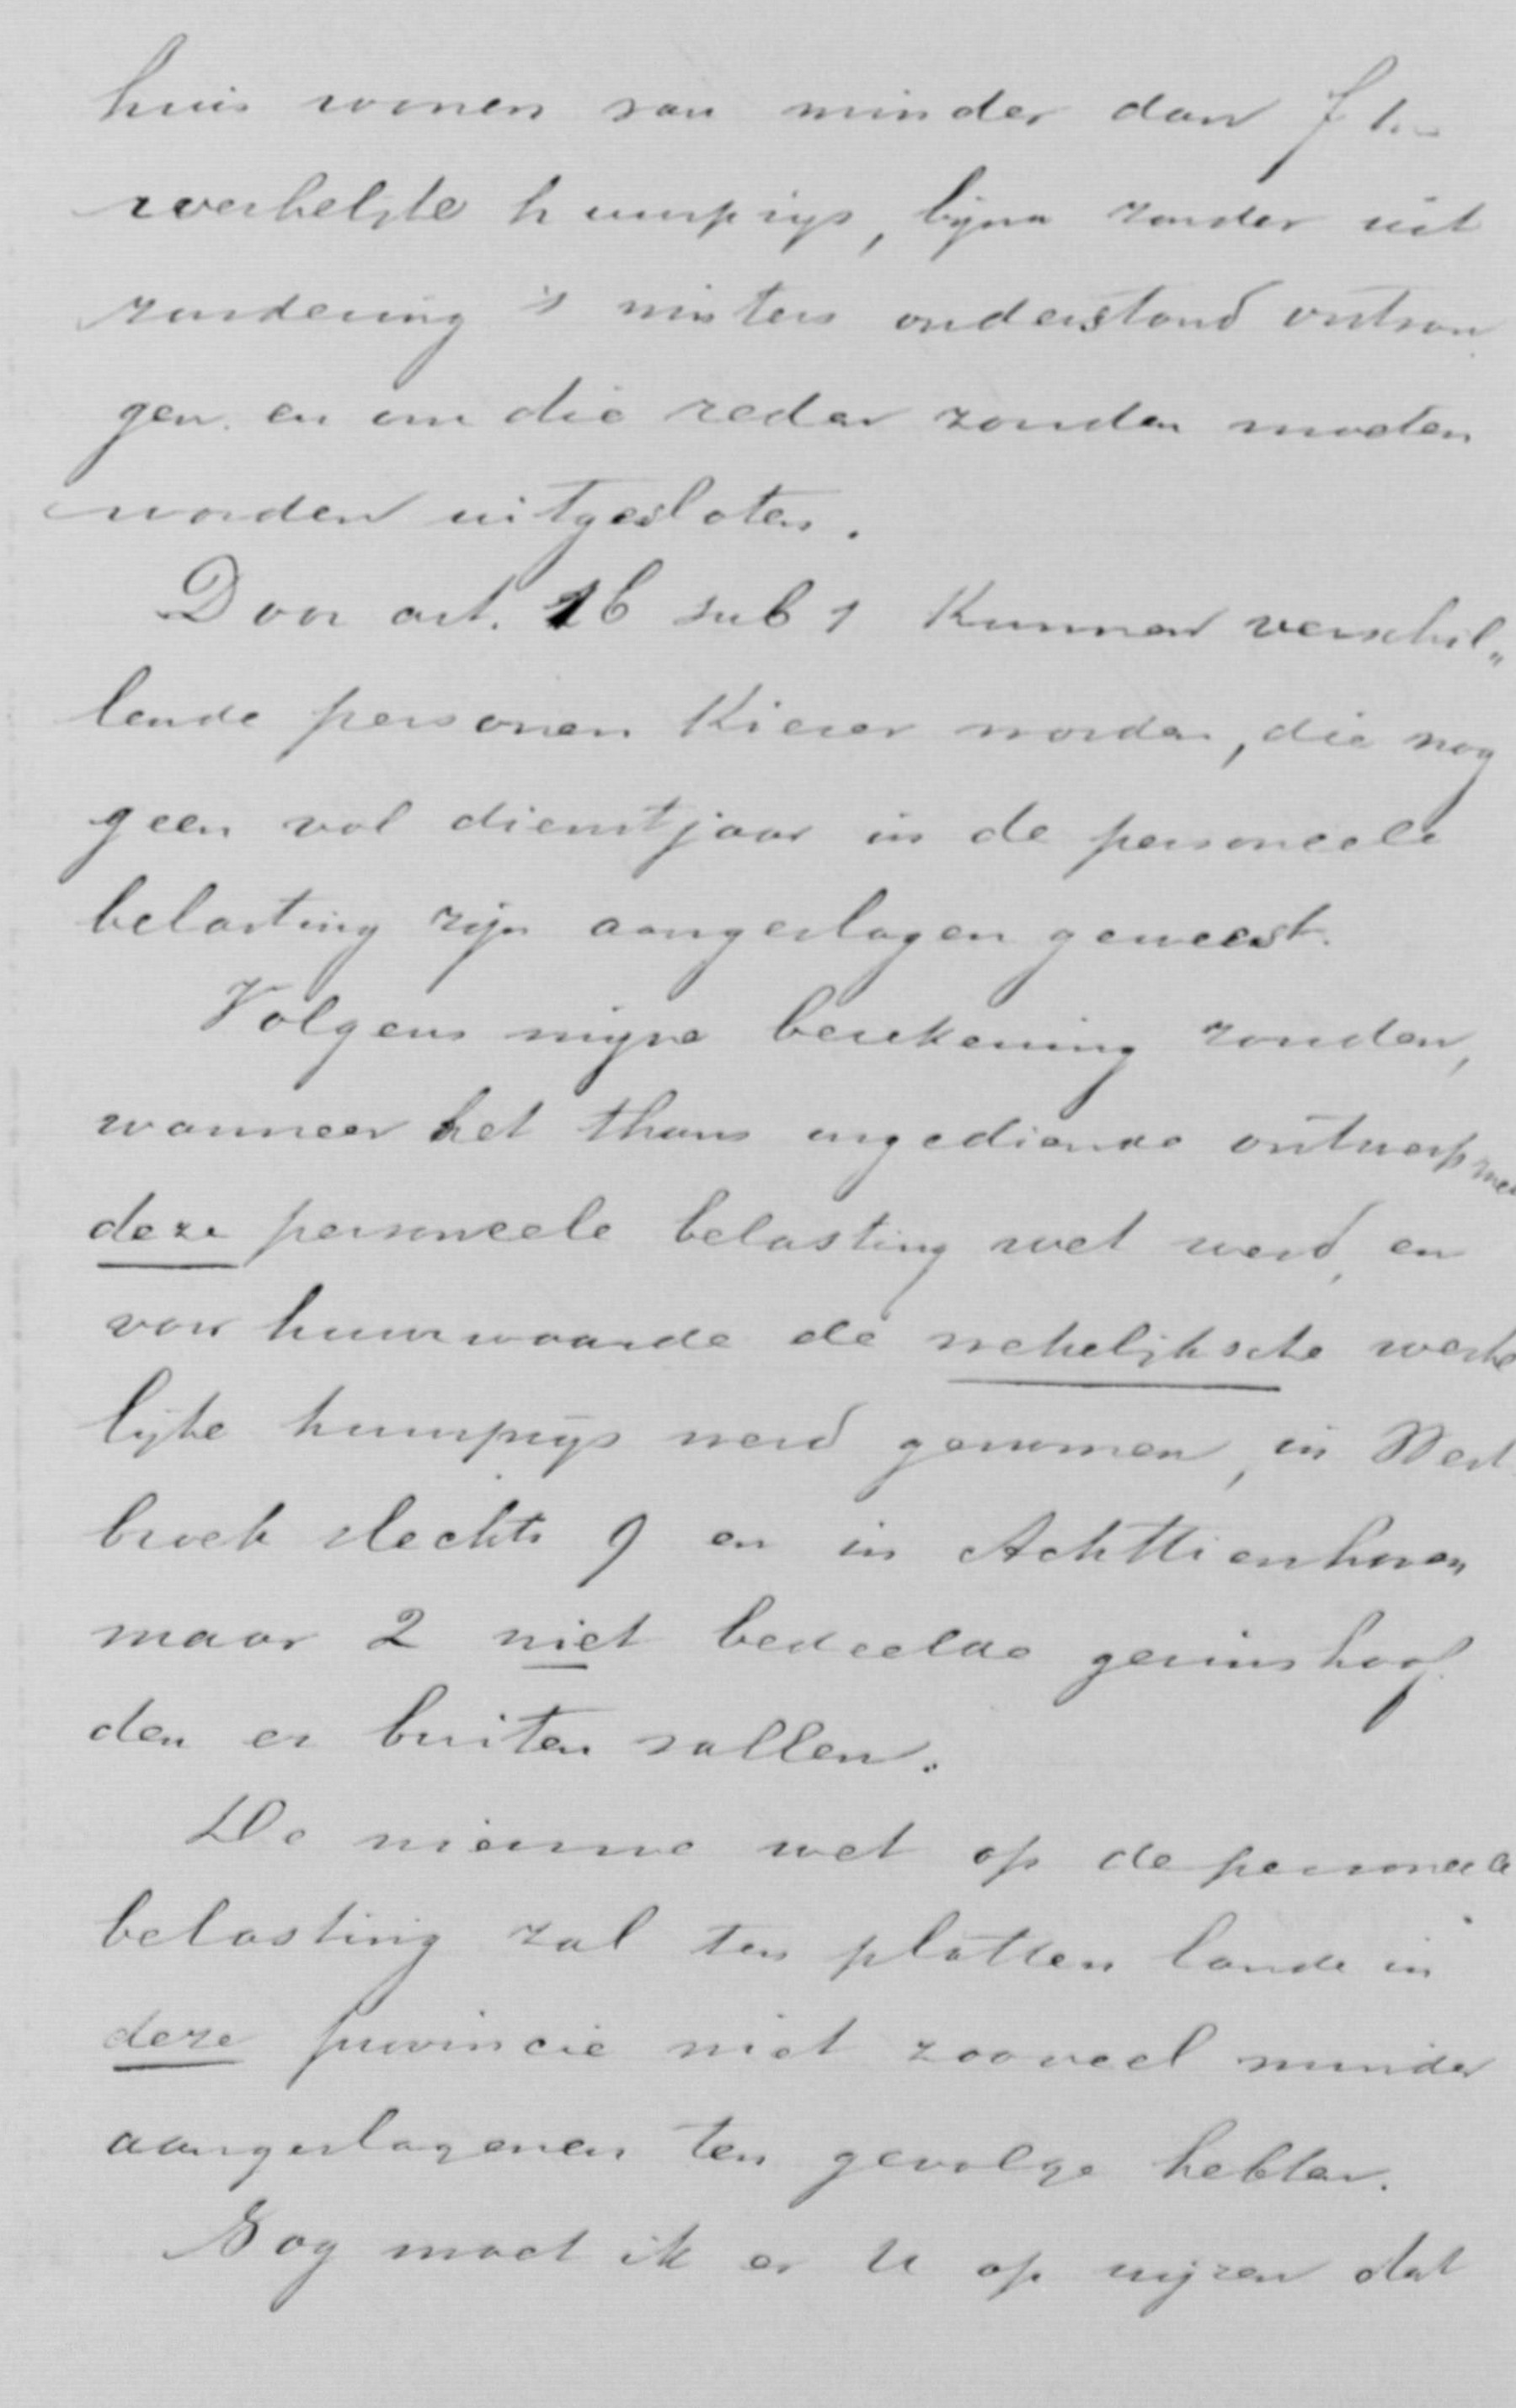 huis wonen van minder dan f 1.–
werkelyke huurprys, byna zonder uit
zondering 's winters onderstand ontvan
gen en om die reden zouden moeten
worden uitgesloten.
Door art. 1b sub 1 kunnen verschil„
lende personen Kiezer worden, die nog
geen vol dienstjaar in de personeele
belasting zijn aangeslagen geweest.
Volgens myne berekening zouden,
wanneer het thans ingediende ontwerp met
deze personeele belasting wet werd, en
voor huurwaarde de wekelijksche werke
lyke huurprys werd genomen, in West
broek slechts 9 en in Achttienhoven
maar 2 niet bedeelde gezinshoof
den er buiten vallen.
De nieuwe wet op de personeele
belasting zal ten platten lande in
deze provincie niet zooveel minder
aangeslagenen ten gevolge hebben.
Nog moet ik er U op wijzen dat